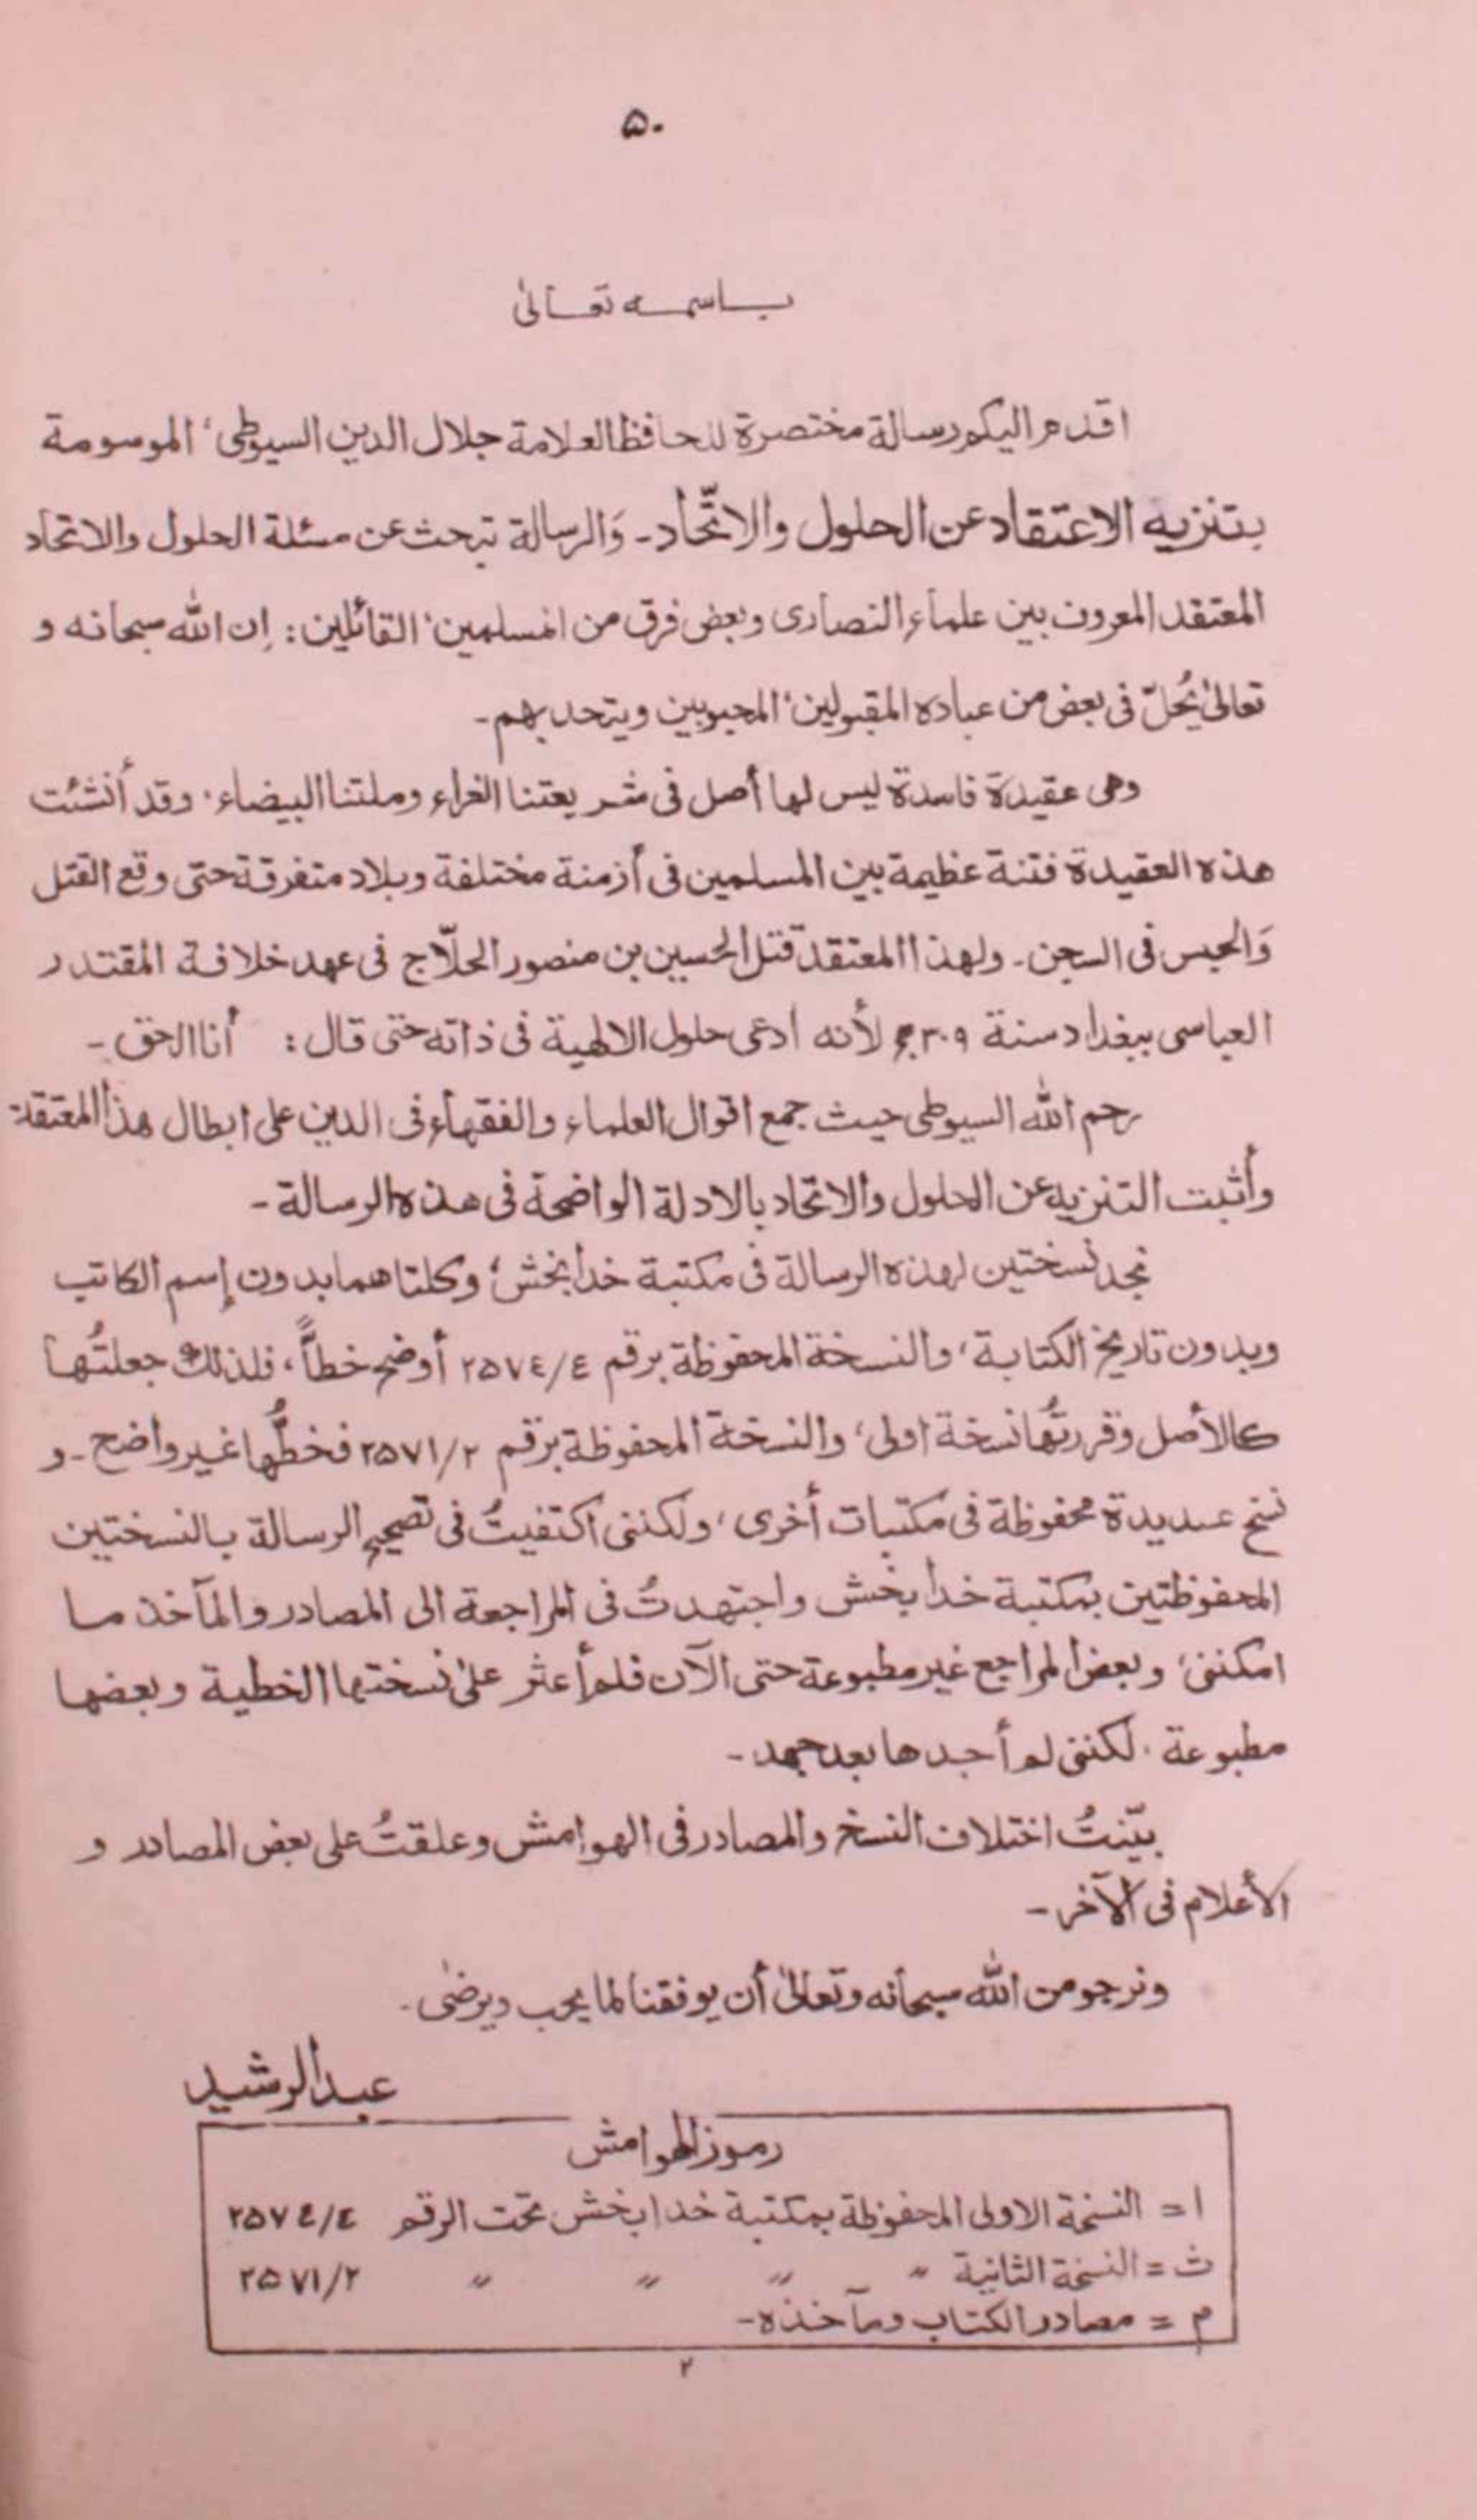 ۵۰
باسمه تعالیٰ
اقدم اليكم رسالة مختصرة للحافظ العلامة جلال الدين السيوطى، الموسومة
بتنزيه الاعتقاد عن الحلول والاتّحاد۔ وَالرسالة تبحث عن مسئلة الحلول والاتحاد
المعتقد المعروف بين علماء النصارى وبعض فرق من المسلمين، القائلين: إن الله سبحانه و
تعالىٰ يُحلّ فى بعض من عباده المقبولين، المحبوبين ويتحد بهم۔
وهى عقيدة فاسدة ليس لها أصل فى شريعتنا الغراء وملتنا البيضاء، وقد أنشئت
هذه العقيدة فتنة عظيمة بين المسلمين فى أزمنة مختلفة وبلاد متفرقة حتى وقع القتل
وَالحبس فى السجن۔ ولهذا المعتقد قتل الحسين بن منصور الحلّاج فى عهد خلافة المقتدر
العباسى ببغداد سنة ۳۰۹ھ لأنه ادعى حلول الالهية فى ذاته حتى قال: أنا الحق۔
رحم الله السيوطى حيث جمع اقوال العلماء والفقهاء فى الدين على ابطال هذا المعتقد
وأثبت التنزيه عن الحلول والاتحاد بالادلة الواضحة فى هذه الرسالة۔
نجد نسختين لهذه الرسالة فى مكتبة خدابخش؛ وكلتاهما بدون إسم الكاتب
وبدون تاريخ الكتابة، والنسخة المحفوظة برقم ٢٥٧٤/٤ أوضح خطاًّ، فلذلك جعلتُها
كالأصل وقررتُها نسخة اولى، والنسخة المحفوظة برقم ٢٥٧١/٢ فخطُّها غير واضح۔ و
نسخ عديدة محفوظة فى مكتبات أخرى، ولكننى اكتفيتُ فى تصحيح الرسالة بالنسختين
المحفوظتين بمكتبة خدا بخش واجتهدتُ فى المراجعة الى المصادر والمآخذ ما
امكننى، وبعض المراجع غير مطبوعة حتى الآن فلم أعثر علىٰ نسختها الخطية وبعضها
مطبوعة، لكننى لم أجدها بعد جهد۔
بيّنتُ اختلاف النسخ والمصادر فى الهوامش وعلقتُ على بعض المصادر و
الأعلام فى الآخر۔
ونرجو من الله سبحانه وتعالىٰ أن يوفقنا لما يحب ويرضٰى۔
عبدالرشيد
رموز الهوامش
ا = النسخة الاولى المحفوظة بمكتبة خدابخش تحت الرقم ٢٥٧٤/٤
ث = النسخة الثانية ״ ״ ״ ״ ٢٥٧١/٢
م = مصادر الكتاب ومآخذه۔
۲